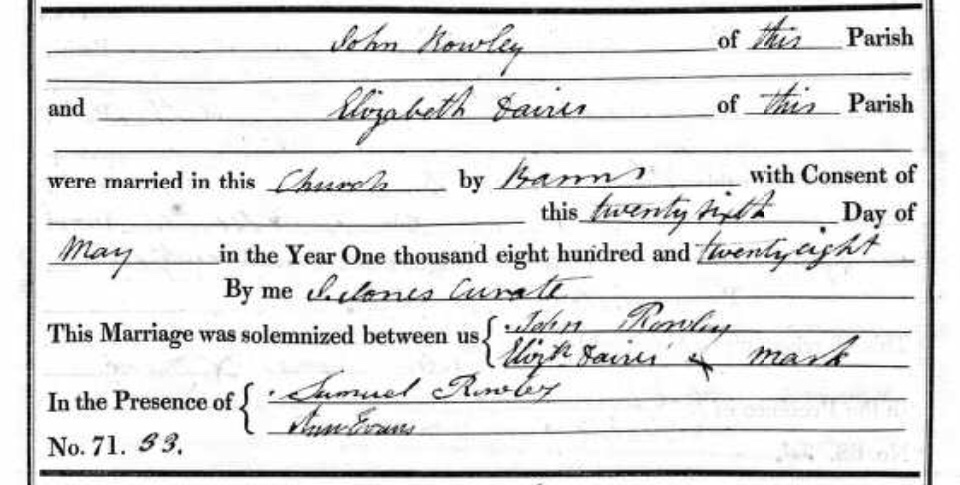 John Rowley of this Parish
and Elizabeth Davies of this Parish
were married in this Church by Banns with Consent of
this twenty sixth Day of
May in the Year One thousand eight hundred and twenty eight
By me J. Jones Curate
This Marriage was solemnized between us { John Rowley
Elizth Davies x mark
In the Presence of { Samuel Rowley
Ann Evans
No. 71. 33.